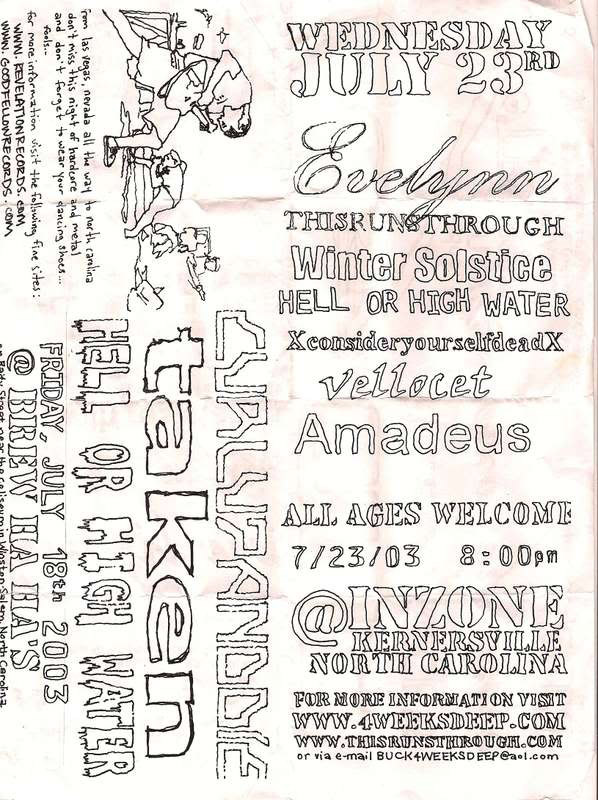 WEDNESDAY
JULY 23RD
Evelynn
THISRUNSTHROUGH
Winter Solstice
HELL OR HIGH WATER
XconsideryourselfdeadX
vellocet
Amadeus
ALL AGES WELCOME
7/23/03 8:00pm
@INZONE
KERNERSVILLE
NORTH CAROLINA
FOR MORE INFORMATION VISIT
WWW.4WEEKSDEEP.COM
WWW.THISRUNSTHROUGH.COM
or via e-mail BUCK4WEEKSDEEP@aol.com
CURLUPANDDIE
taken
HELL OR HIGH WATER
FRIDAY, JULY 18th 2003
@ BREW HA HA'S
on Baity Street near the coliseum in Winston-Salem, North Carolina
from las vegas, nevada all the way to north carolina
don't miss this night of hardcore and metal
and don't forget to wear your dancing shoes...
fools..
for more information visit the following fine sites:
WWW.REVELATIONRECORDS.COM
WWW.GOODFELLOWRECORDS.COM